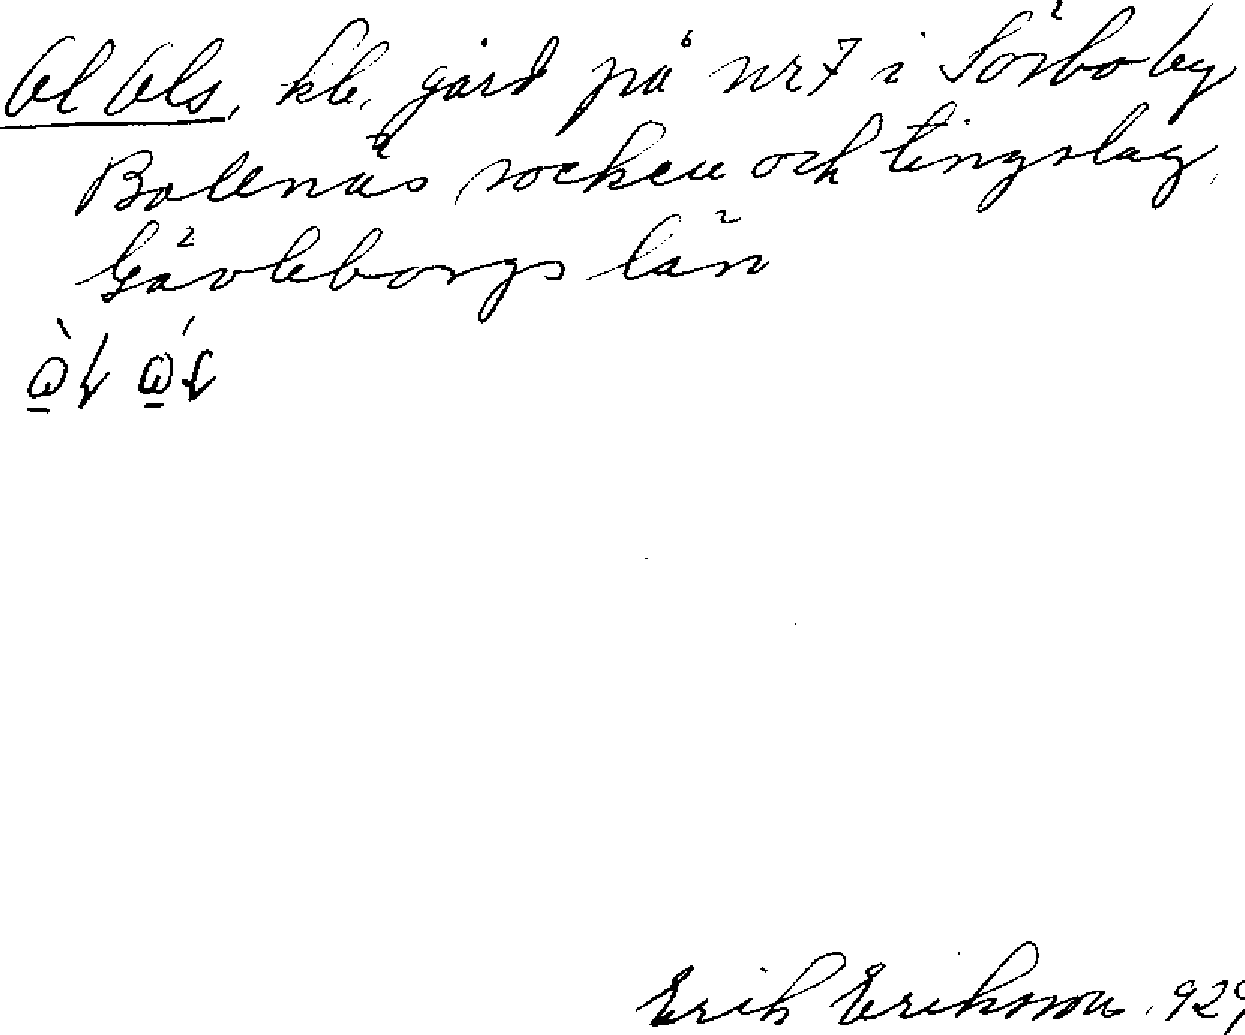 Ol Ols, kb. gård på nr 7 i Sörbo by,
Bollnäs socken och tingslag,
Gävleborgs län
Erik Eriksson 929